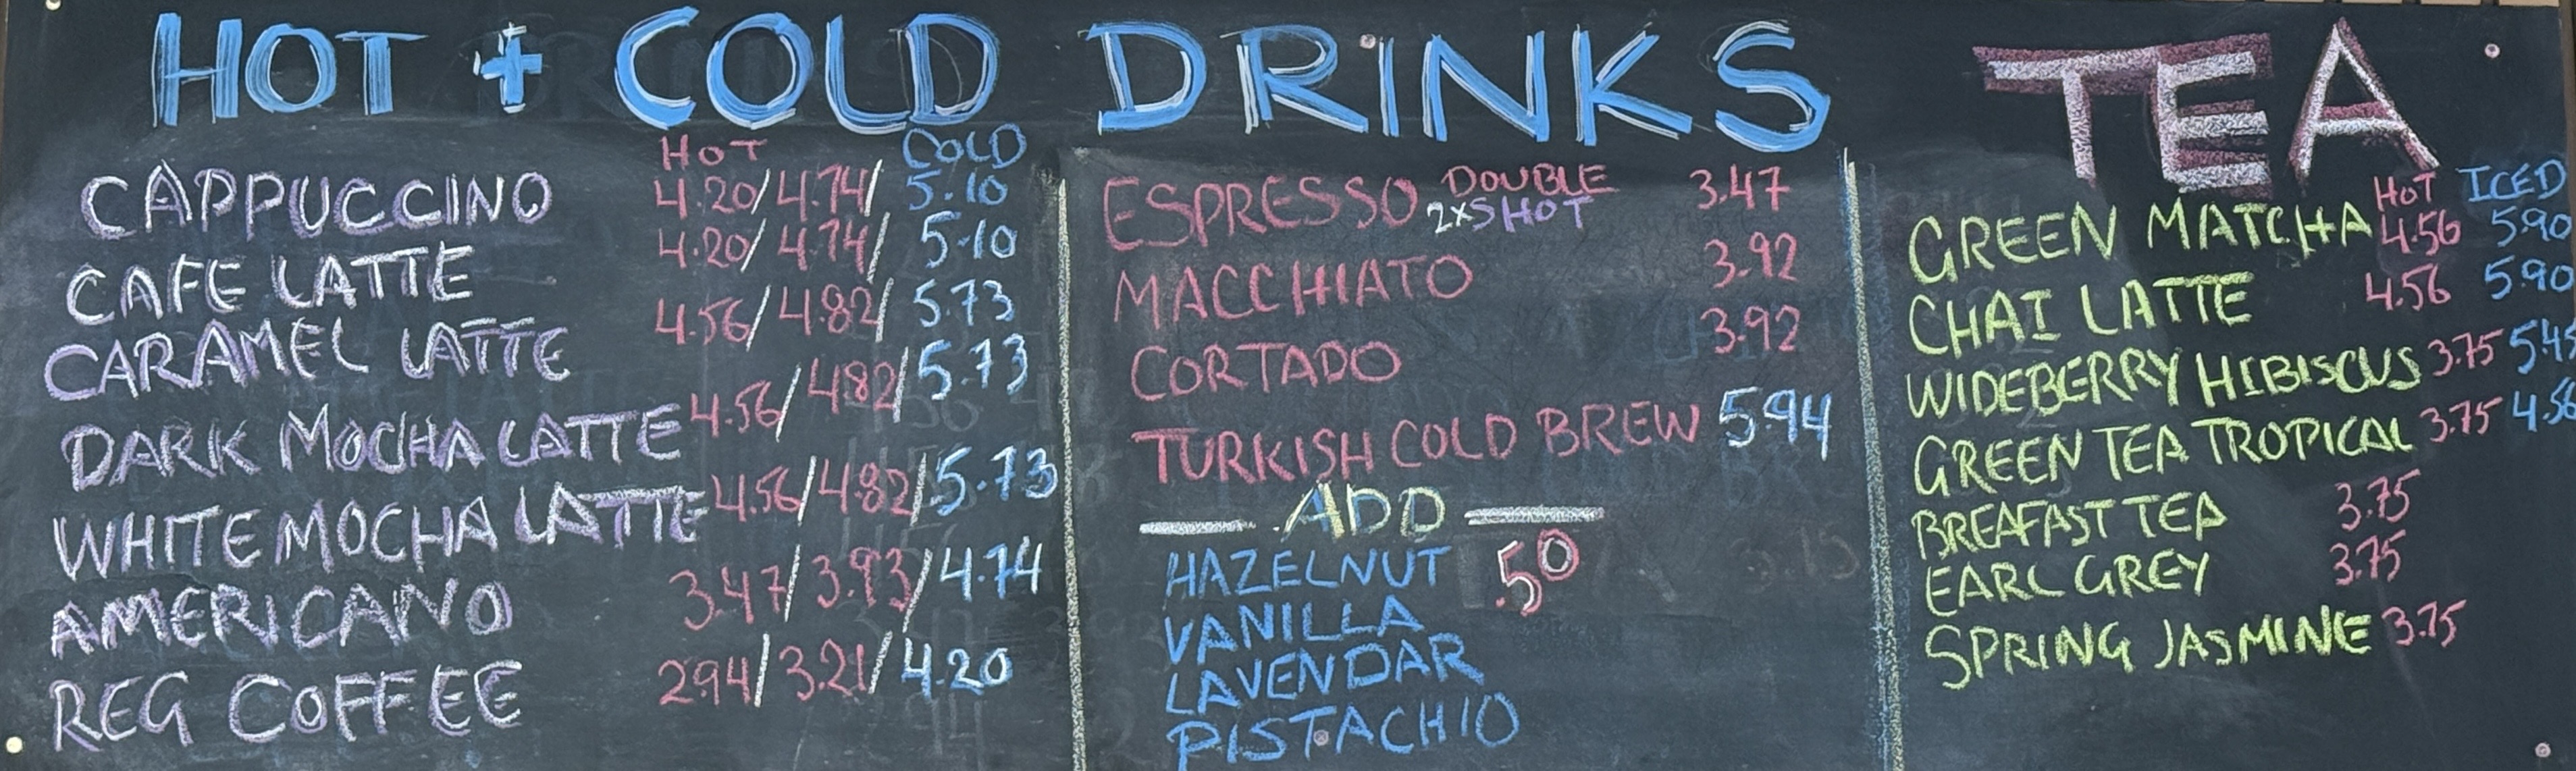 HOT + COLD DRINKS
HOT COLD
CAPPUCCINO 4.20/4.74/ 5.10
CAFE LATTE 4.20/4.74/ 5.10
CARAMEL LATTE 4.56/4.82/ 5.73
DARK MOCHA LATTE 4.56/4.82/5.73
WHITE MOCHA LATTE 4.56/4.82/5.73
AMERICANO 3.47/3.93/4.74
REG COFFEE 2.94/3.21/4.20
ESPRESSO DOUBLE 3.47
2xSHOT
MACCHIATO 3.92
CORTADO 3.92
TURKISH COLD BREW 5.94
ADD
HAZELNUT .50
VANILLA
LAVENDAR
PISTACHIO
TEA
HOT ICED
GREEN MATCHA 4.56 5.90
CHAI LATTE 4.56 5.90
WIDEBERRY HIBISCUS 3.75 5.45
GREEN TEA TROPICAL 3.75 4.56
BREAFAST TEA 3.75
EARL GREY 3.75
SPRING JASMINE 3.75